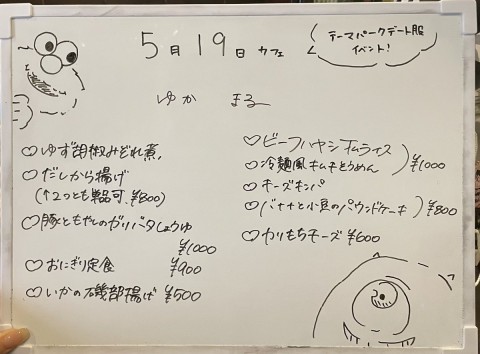 5月19日 カフェ
テーマパークデート服
イベント!
ゆか まるー
♡ゆず胡椒みぞれ煮、
♡だしから揚げ
(↑2つとも単品可、¥800)
♡豚ともやしのガリバタしょうゆ
¥1000
♡おにぎり定食 ¥900
♡いかの磯部揚げ ¥500
♡ビーフハヤシオムライス
♡冷麺風キムチそうめん
¥1000
♡チーズキンパ
♡バナナと小豆のパウンドケーキ
¥800
♡カリもちチーズ ¥600